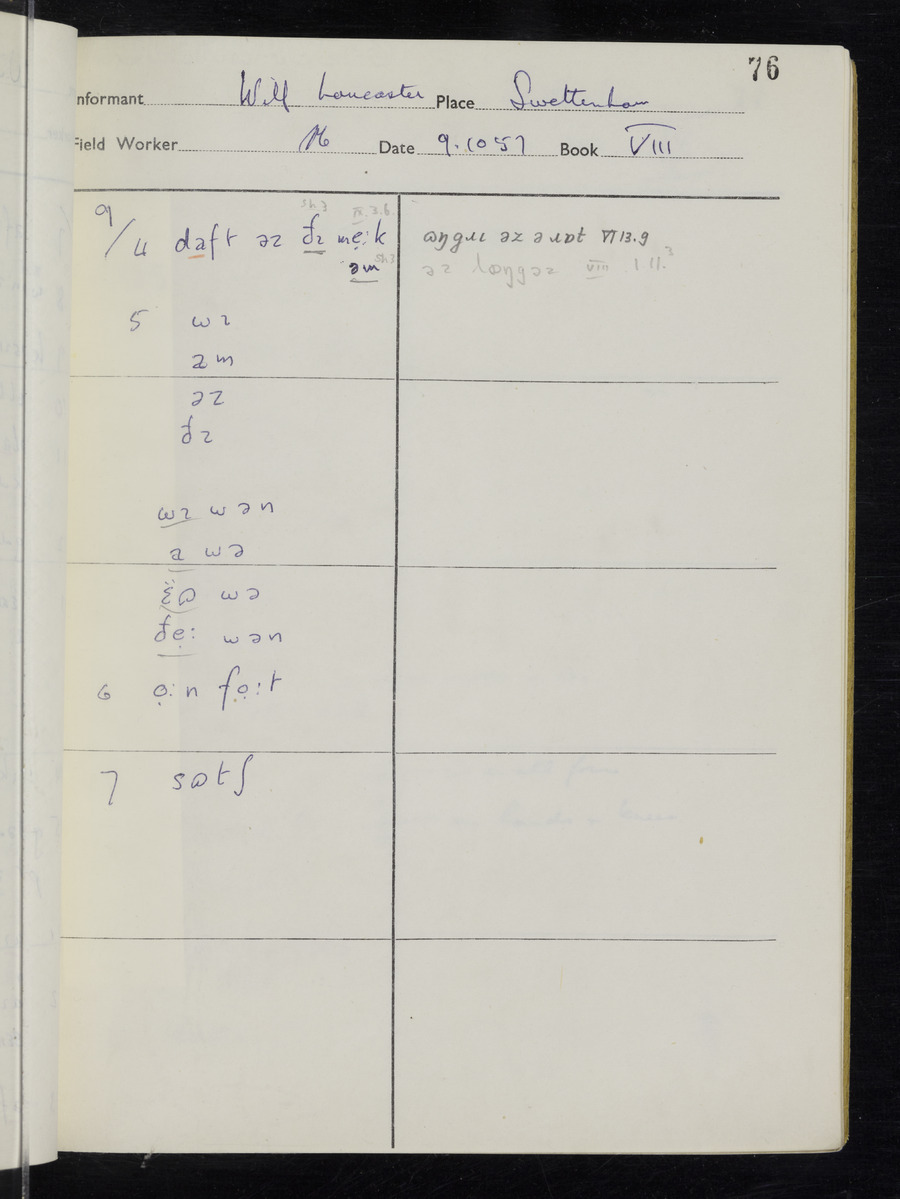 76
nformant Will Lancaster Place Swettenham
Field Worker Date 9.10 57 Book VIII
sh.3 IX.3.6.
9/4 daft əz ðɪ mẹ:k
əm sh.3
əz ə VI 13.9
əz VIII . 1 11.3
5 wɪ
əm
əz
ðɪ
wɪ wən
a wə
wə
ðẹ: wən
6 ọ:n fọ:t
7 sɷtʃ